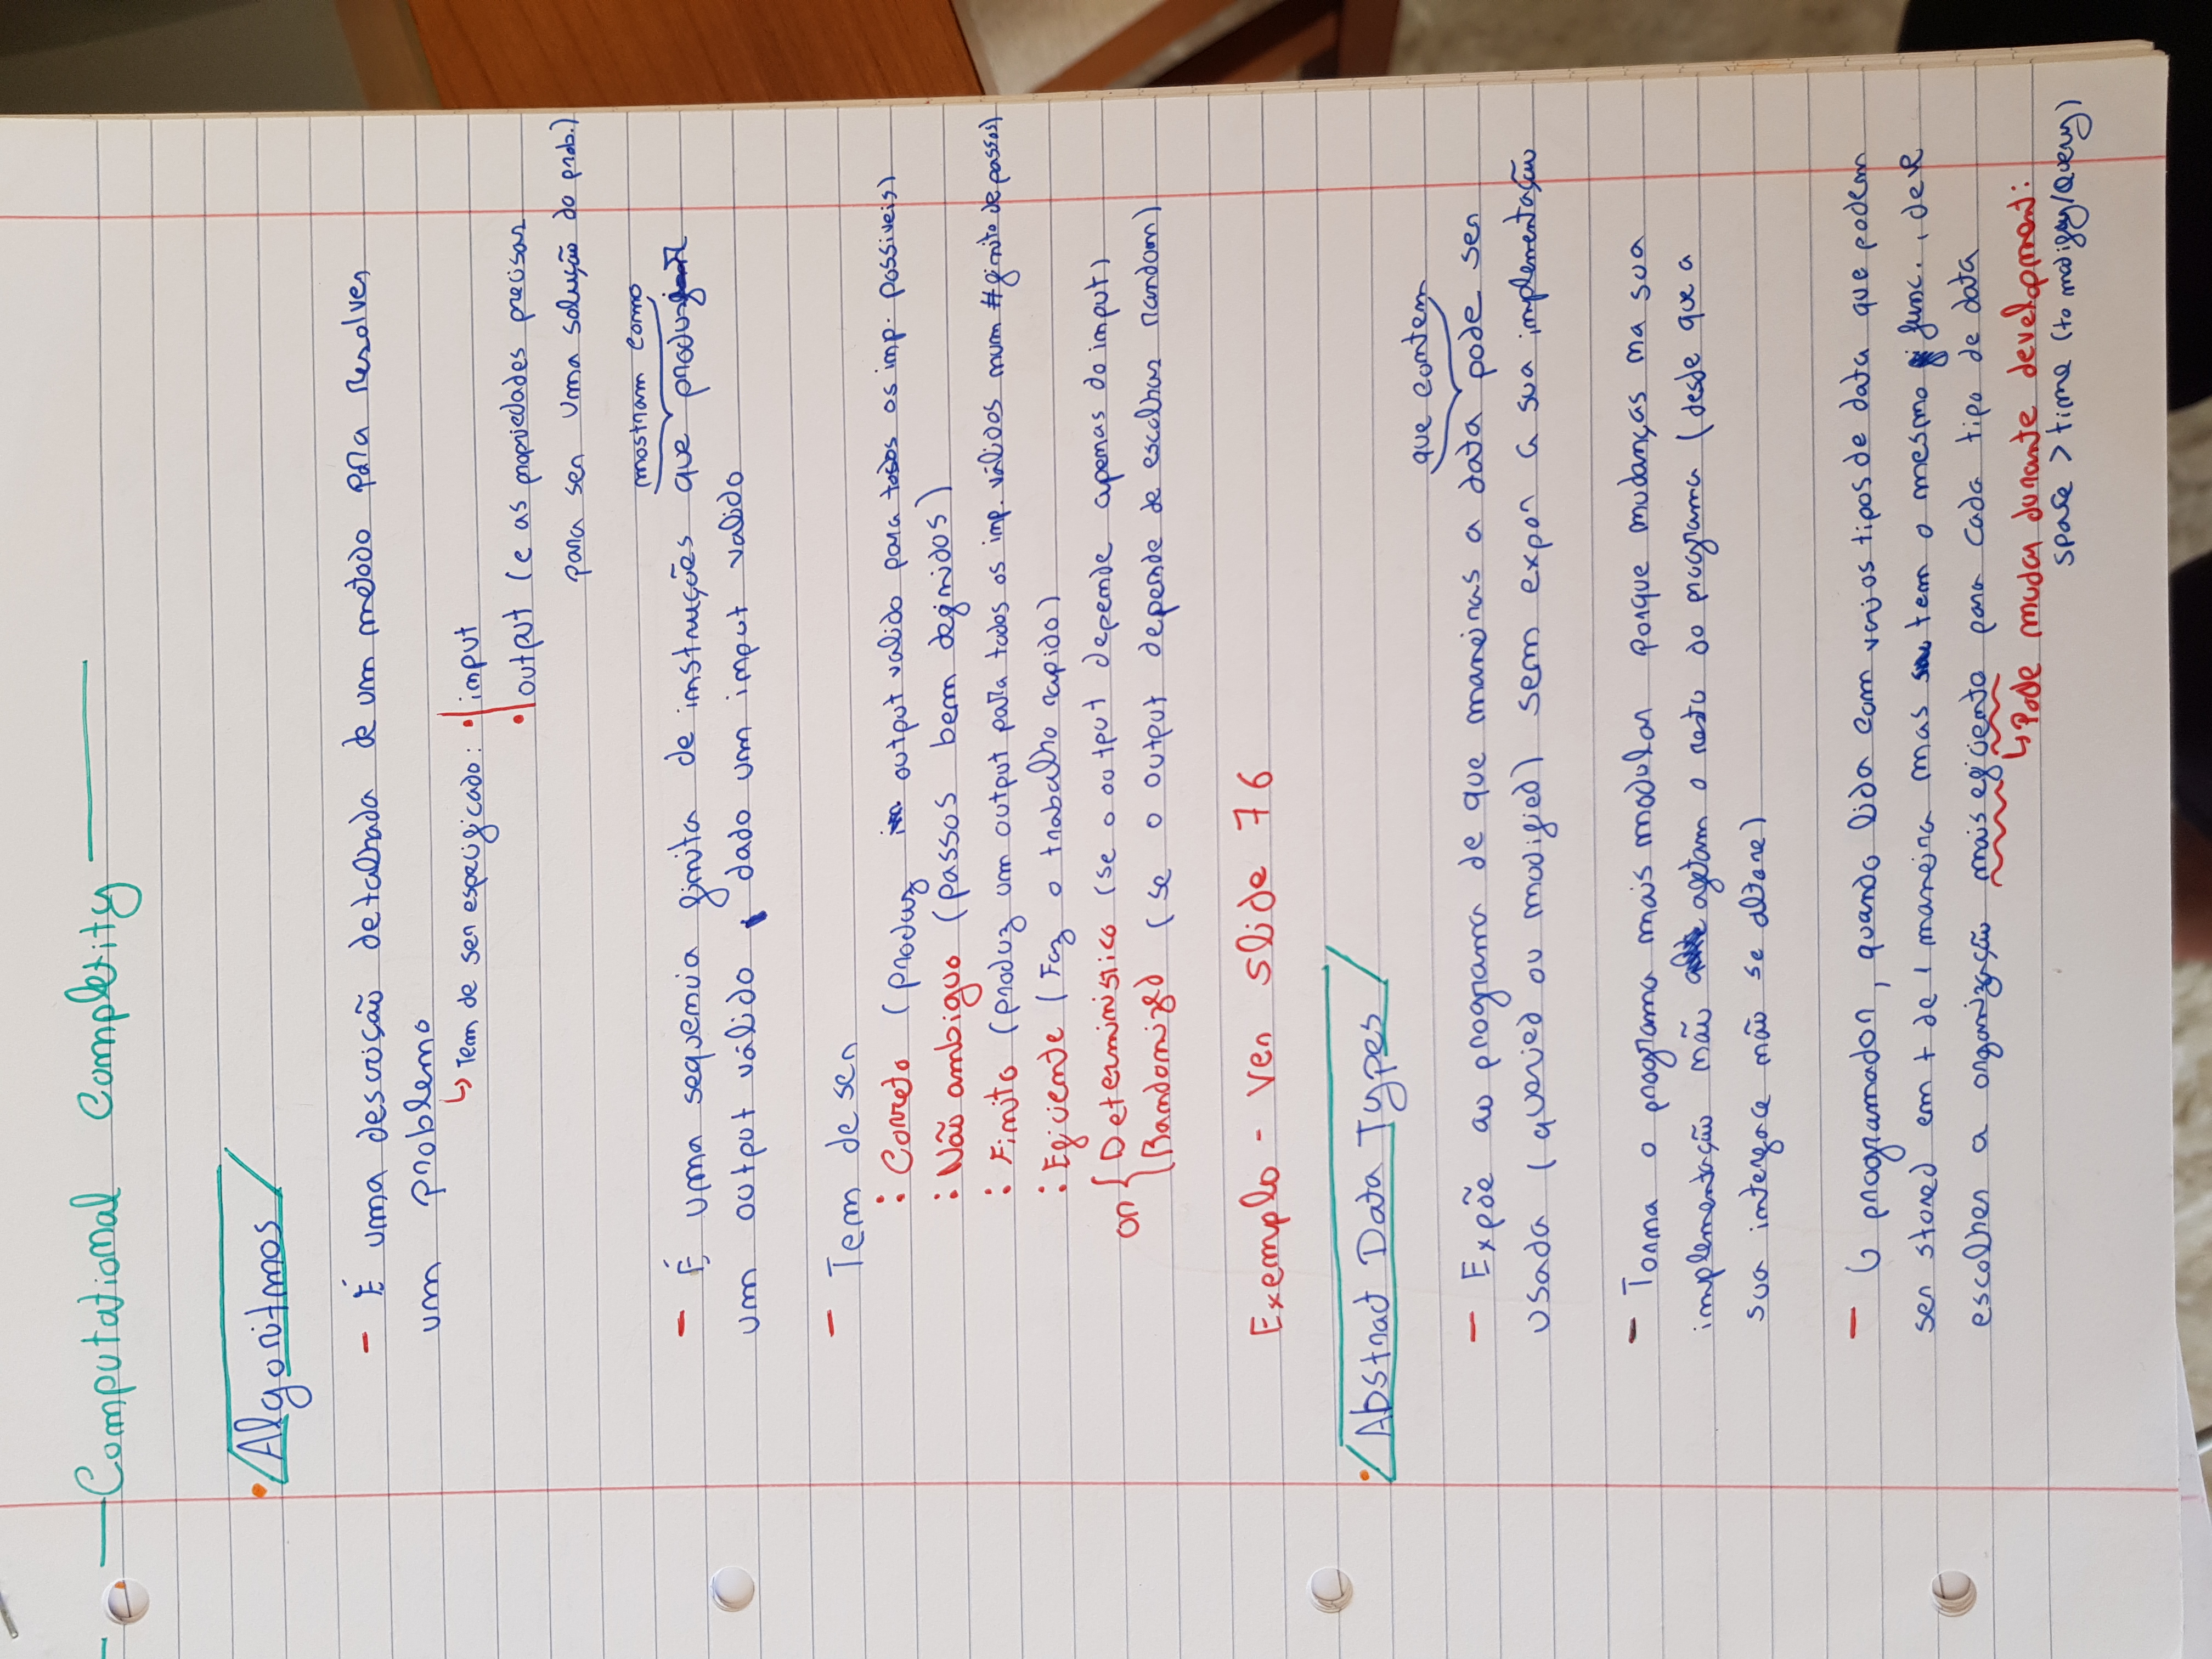 Computational Complexity
Algoritmos
- É uma descrição detalhada de um método para resolver
um problema
↳ Tem de ser especificado: • input
• output (e as propriedades precisas
para ser uma solução do prob.)
mostram como
- É uma sequencia finita de instruções que produz
um output válido, dado um input valido
- Tem de ser
: Correto (produz output valido para todos os inp. possiveis)
: Não ambiguo (passos bem definidos)
: Finito (produz um output para todos os inp. válidos num # finito de passos)
: Eficiente (Faz o trabalho rapido)
or { Deterministico (se o output depende apenas do input)
Randomized (se o output depende de escolhas random)
Exemplo - Ver slide 76
Abstract Data Types
que contem
- Expõe ao programa de que maneiras a data pode ser
usada (queried ou modified) sem expor a sua implementação
- Torna o programa mais modular porque mudanças na sua
implementação não afetam o resto do programa (desde que a
sua interface não se altere)
- O programador, quando lida com varios tipos de data que podem
ser stored em + de 1 maneira mas tem o mesmo func., deve
escolher a organização mais eficiente para cada tipo de data
↳ Pode mudar durante development:
space > time (to modify/query)